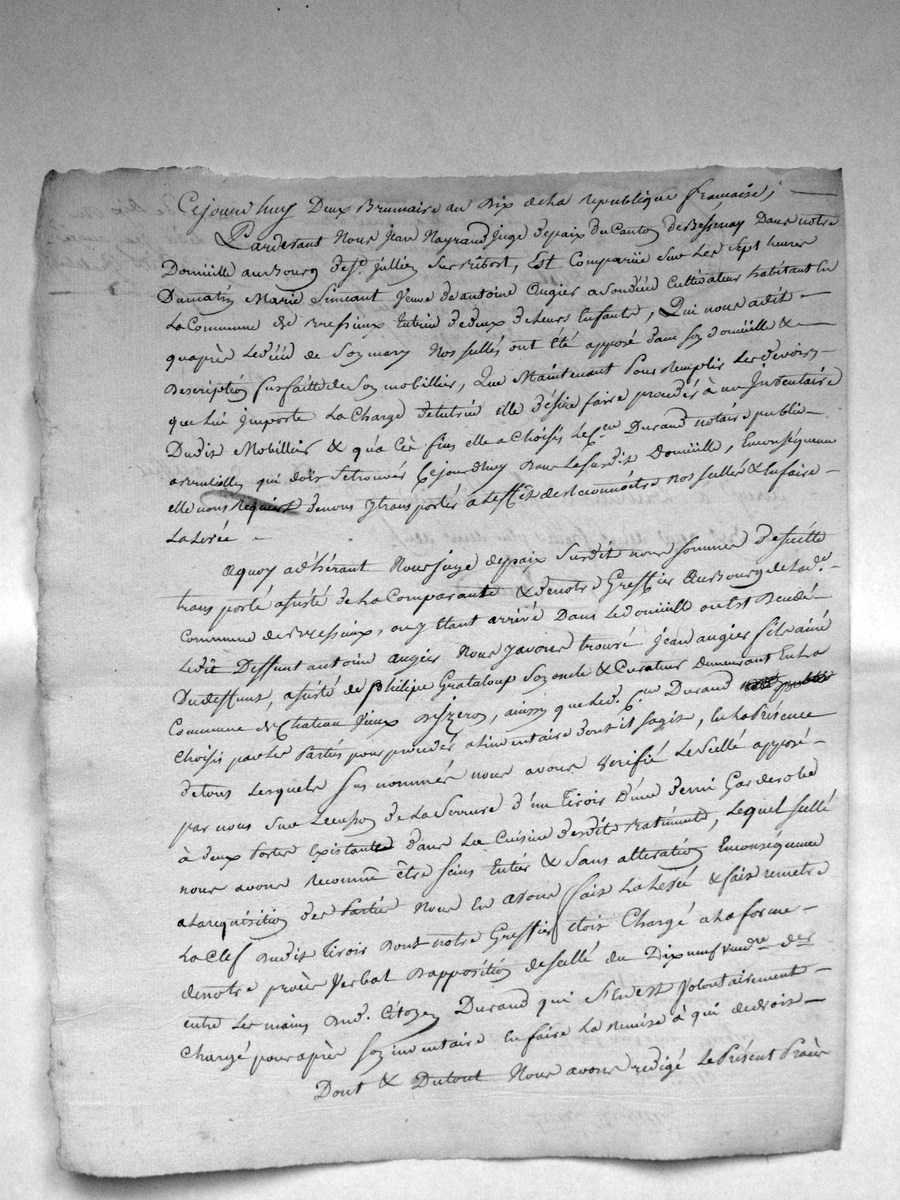 Cejourd'huy Deux Brumaire an Dix de la République française,
Pardevant Nous Jean Nayrand juge de paix du Canton de Bessenay Dans notre
Domicille au Bourg de St. Jullien Sur Bibost, Est Comparüe Sur Les Sept heures
Du matin Marie Simeant Veuve de antoine Augier a Son décéd Cultivateur habitant En
La Commune de Bressieux tutrice de deux de leurs Enfants, Qui nous a dit
qu'après le décéd de Son mary Nos Scellés ont été apposé dans Son domicille &
Description fut faitte de Son mobillier, Que Maintenant Pour Remplir Les devoirs
que Lui Importe La Charge de tutrice elle désire faire procéder à un Inventaire
Dudit Mobillier & qu'a Cès fins elle a Choisis Le Cen. Durand notaire public
qui doit Se trouver Cejourd'huy Dans Le Susdit Domicille, En conséquence
elle nous Requiert de nous y transporter a L'effèt de Reconnoitre nos Scellés & En faire
La Levée
A quoy adhérant Nous juge de paix Susdit nous Sommes de Suitte
transporté assisté de La Comparante & de notre Greffier au Bourg de la de.
Commune de Bressieux, ou y Etant arrivé Dans Le domicille ou Est Décédé
Ledit Deffunt antoine augier Nous y avons trouvé Jean augier fils ainé
Du deffunt, assisté de Philipe Grataloup Son oncle & Curateur demeurant En La
Commune de Chateau Vieux Yzeron, ainssy que Led. Cen. Durand
Choisis par Les Parties pour procéder a L'inventaire dont il Sagit, En La Présence
de tous Lesquels Sus nommés nous avons vérifié Le Scellé apposé
par nous Sur L'entrée de La Serrure d'un tiroir D'une demi Garderobe
à deux Portes Existante dans La Cuisine desdits Batiments, Lequel Scellé
nous avons reconnu être Sains Entier & Sans alteration En conséquence
a La réquisition des Parties Nous En avons fait La Levée & fait remetre
La Clef Dudit tiroir Dont notre Greffier Etoit Chargé a La forme
de notre procès Verbal D'apposition de Scellé du Dix neuf vendre. der
entre Les mains Dud. Citoyen Durand qui S'En Est Volontairement
Chargé pour après Son inventaire En faire La Remise à qui de droit
Dont & Du tout Nous avons rédigé Le Présent Procès